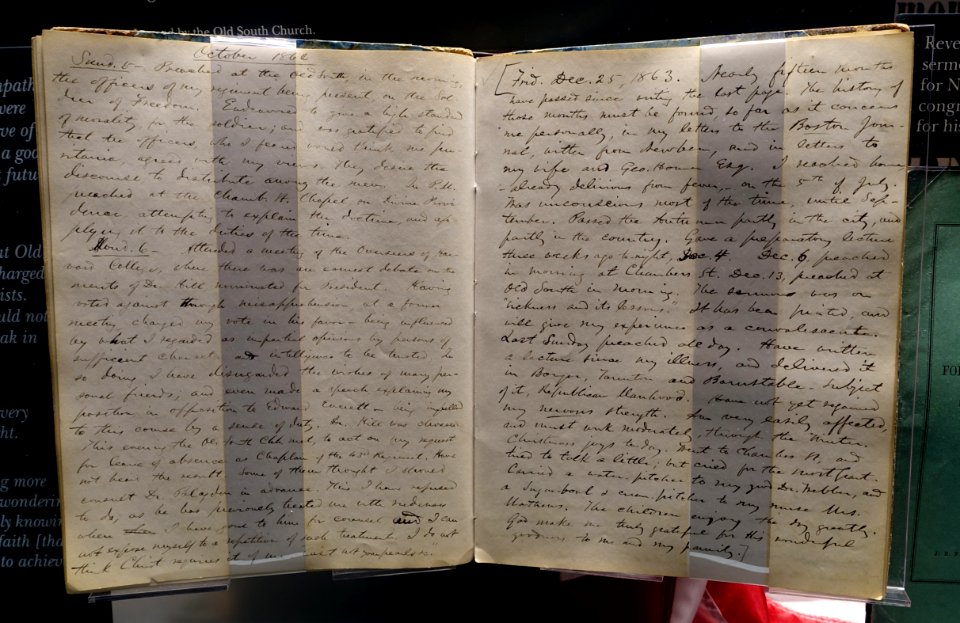 by the Old South Church.
October 1862
Sund. 5 - Preached at the Old South, in the morning,
the officers of my regiment being present, on the
of Freedom. Endeavored to give a high standard
of morality, for the soldier; and was gratified to find
that the officers, who I feared would think me
agreed with my views. They desire the
discourse to distribute among the men. In P.M.
preached at the Chamb. St. Chapel on Divine Provi-
dence, attempting to explain the doctrine and ap-
plying it to the duties of the time.
Mond. 6 Attended a meeting of the Overseers of Har-
vard College, where there was an earnest debate on the
merits of Dr. Hill nominated for President. Having
voted against through misapprehension at a former
meeting, changed my vote in his favor - being influenced
by what I regarded as impartial opinions by persons of
sufficient character and intelligence to be trusted. In
so doing, I have disregarded the wishes of many per-
sonal friends; and even made a speech explaining my
position in opposition to Edward Everett - being impelled
to this course by a sense of duty. Dr. Hill was chosen.
This evening the Old South Chh. met, to act on my request
for leave of absence as Chaplain of the 43d Regiment. Have
not heard the result. Some of them thought I should
consult Dr. Blagden in advance. This I have refused
to do, as he has previously treated me with rudeness
where I have gone to him for counsel and I can
not expose myself to a repetition of such treatment. I do not
think Christ requires it of me
[Frid. Dec. 25, 1863. Nearly fifteen months
have passed since writing the last page. The history of
those months must be found, so far as it concerns
me personally, in my letters to the Boston Jour-
nal, written from Newbern, and in letters to
my wife and Geo. Homer Esq. I reached home
- already delirious from fever, - on the 5th of July.
Was unconscious most of the time, until Sep-
tember. Passed the Autumn partly in the city, and
partly in the country. Gave a preparatory lecture
three weeks ago to-night, Dec 4. Dec. 6, preached
in morning at Chambers St. Dec. 13, preached at
Old South in morning. The sermon was on
"Sickness and its lessons." It has been printed, and
will give my experience as a convalescent.
Last Sunday preached all day. Have written
a lecture since my illness, and delivered it
in Taunton and Barnstable. Subject
of it, Republican Manhood. Have not yet regained
my nervous strength. Am very easily affected,
and must work moderately, through the Winter.
Christmas joys to-day. Went to Chambers St. and
tried to talk a little; but cried for the most part.
Carried a water pitcher to my good Dr. and
a Sugarbowl & cream pitcher to my nurse Mrs.
Watkins. The children enjoy the day greatly.
God make me truly grateful for His wonderful
goodness to me and my family.]